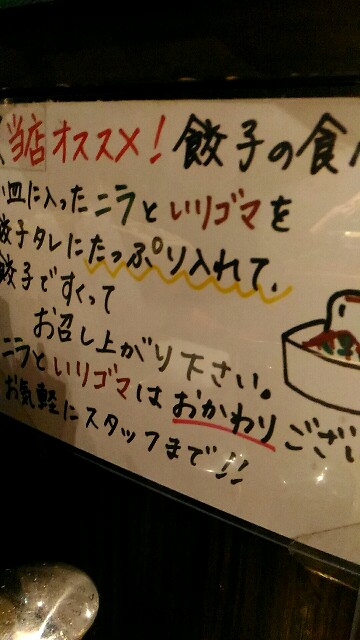 当店オススメ! 餃子の食
小皿に入ったニラといりゴマを
餃子タレにたっぷり入れて、
餃子ですくって
お召し上がり下さい。
ニラといりゴマはおかわりござい
お気軽にスタッフまで!!